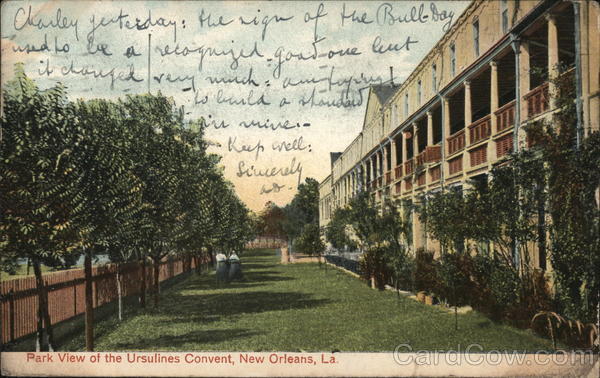 Charley yesterday: the sign of the Bull Dog
used to be a recognized good one but
it changed very much: am trying
to build a standard
in mine:-
Keep well:
Sincerely
Park View of the Ursulines Convent, New Orleans, La.
CardCow.com